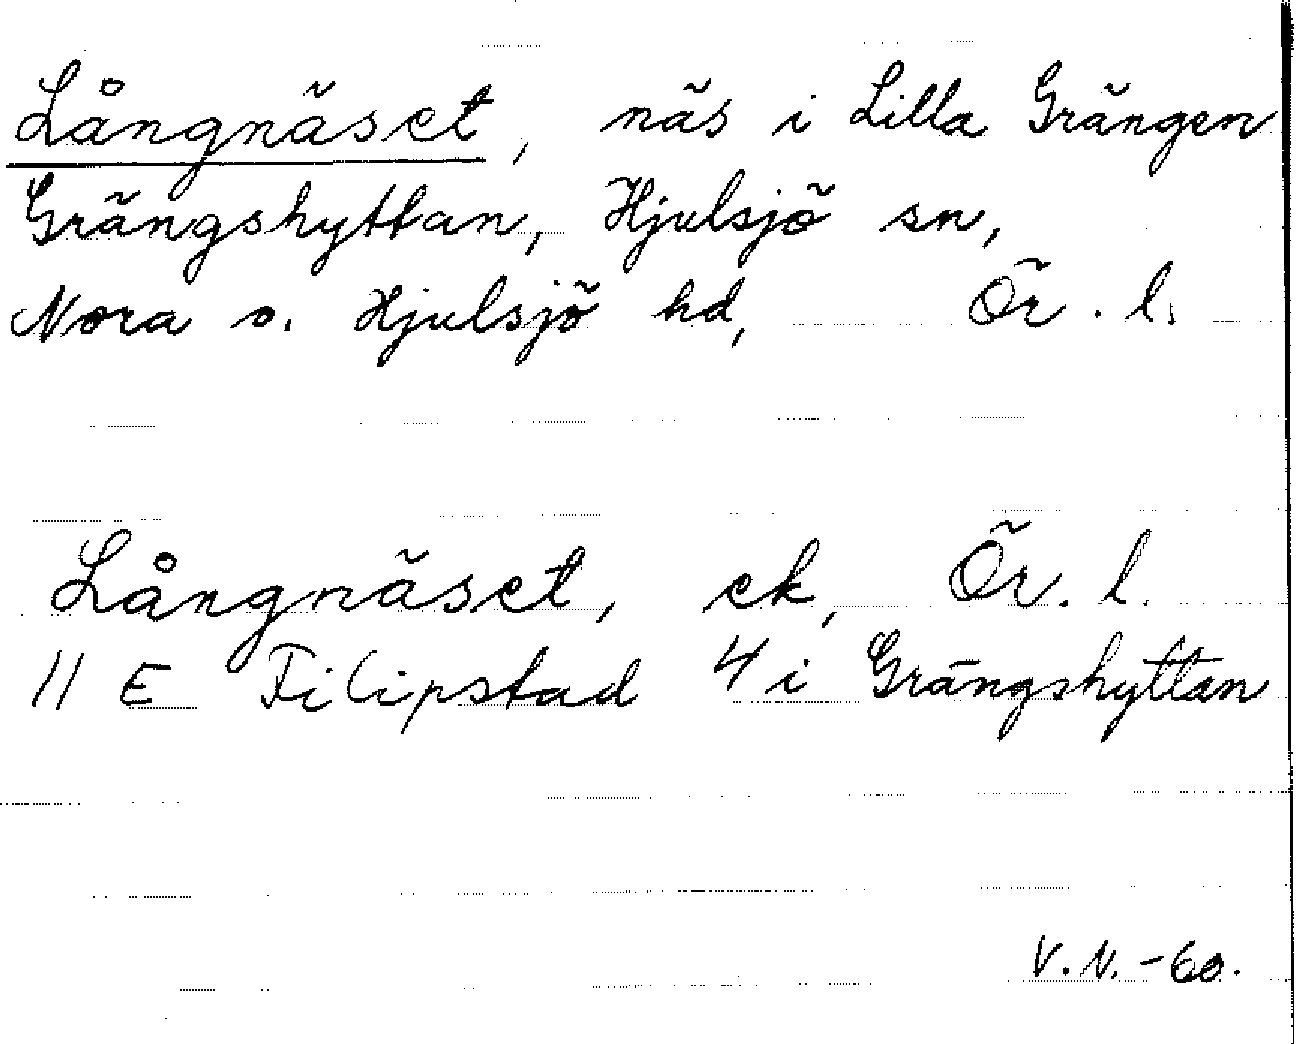 Långnäset, näs i Lilla Grängen
Grängshyttan, Hjulsjö sn,
Nora o. Hjulsjö hd, Ör. l.
Långnäset, ek, Ör. l.
11 E Filipstad 4 i Grängshyttan
V. N. -60.